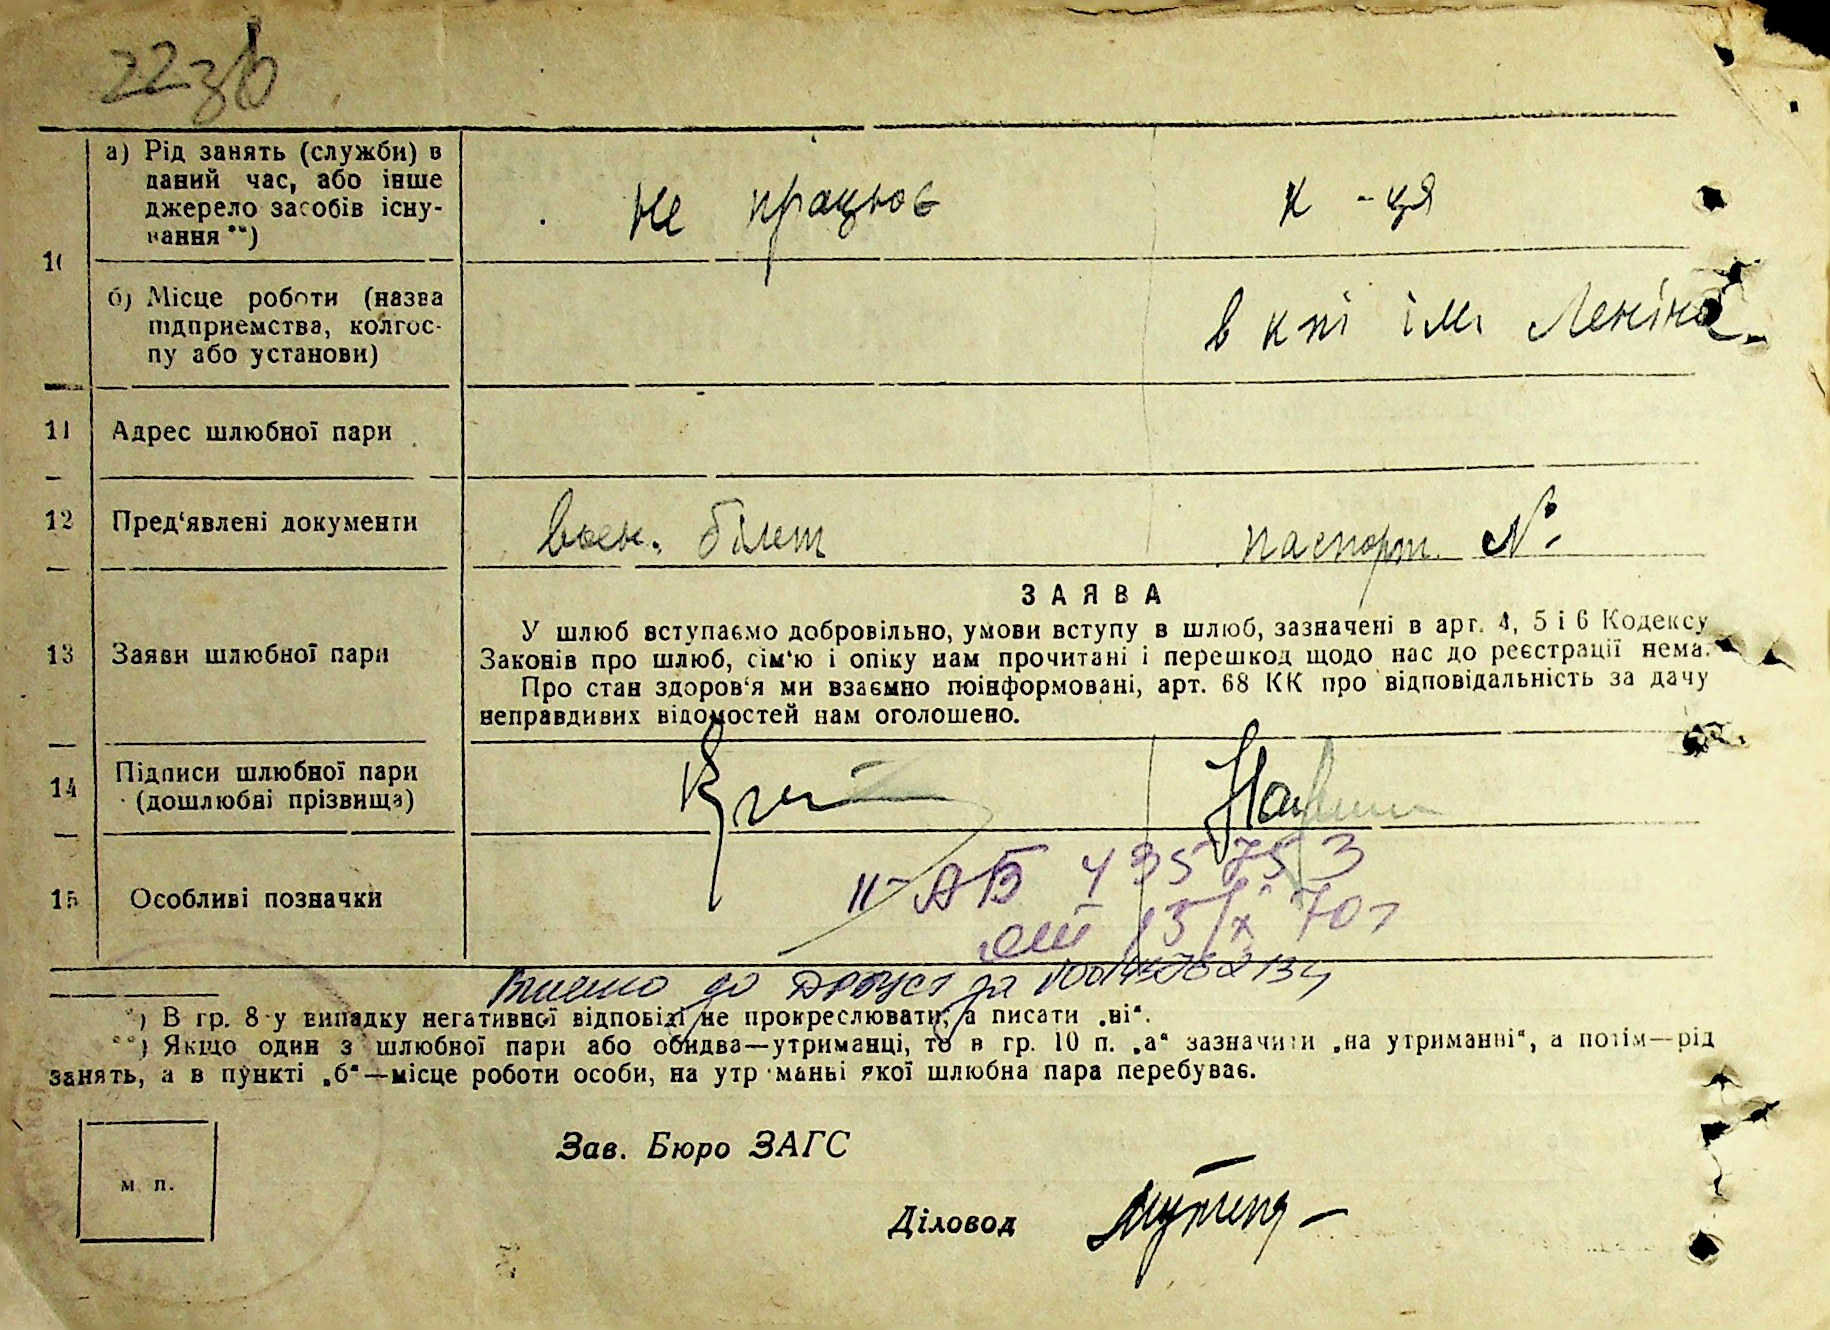 22зв
10
а) Рід занять (служби) в
даний час, або інше
джерело засобів існу-
вання **)
не працює
к-ця
б) Місце роботи (назва
підприємства, колгос-
пу або установи)
в кпі ім. Леніна
11
Адрес шлюбної пари
12
Пред‘явлені документи
воен. білет
паспорт №
ЗАЯВА
13
Заяви шлюбної пари
У шлюб вступаємо добровільно, умови вступу в шлюб, зазначені в арт. 4, 5 і 6 Кодексу
Законів про шлюб, сім‘ю і опіку нам прочитані і перешкод щодо нас до реєстрації нема.
Про стан здоров‘я ми взаємно поінформовані, арт. 68 КК про відповідальність за дачу
неправдивих відомостей нам оголошено.
14
Підписи шлюбної пари
(дошлюбні прізвища)
II-АБ 435753
от 15/X 70г
15
Особливі позначки
до ДРАЦСГ за
*) В гр. 8 у випадку негативної відповіді не прокреслювати, а писати „ні“.
**) Якщо один з шлюбної пари або обидва—утриманці, то в гр. 10 п. „а“ зазначити „на утриманні“, а потім—рід
занять, а в пункті „б“—місце роботи особи, на утриманні якої шлюбна пара перебуває.
Зав. Бюро ЗАГС
м. п.
Діловод